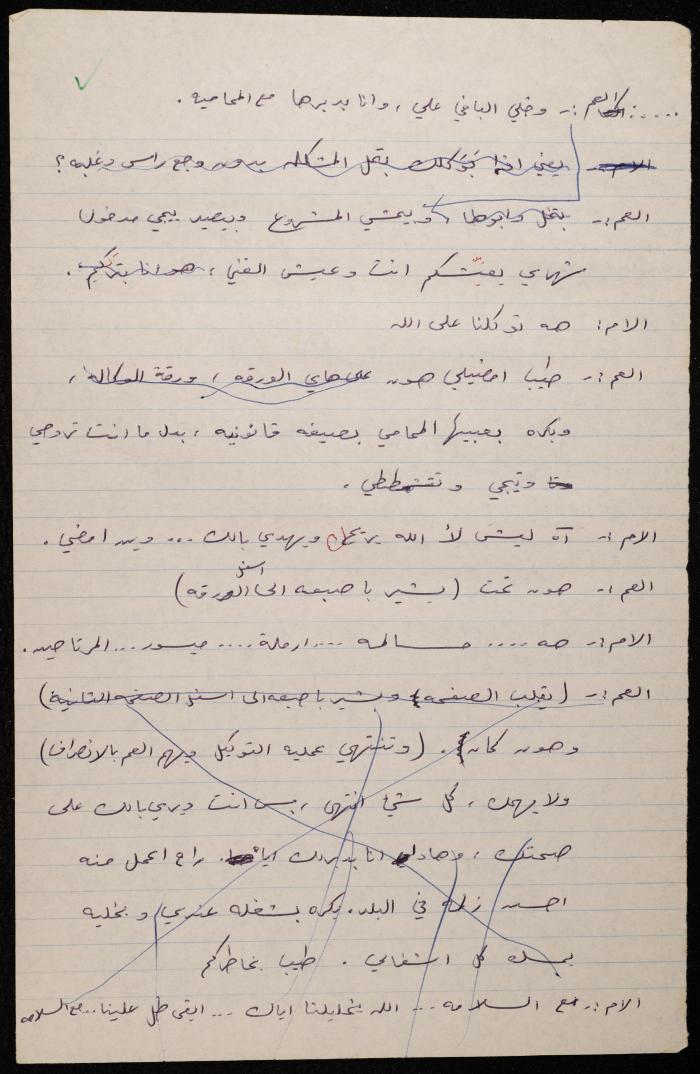 .....: العم :- وخلي الباقي علي ، وانا بدبرها مع المحاميه .
الام :- يعني اذا بتوكلك بتحل المشكله بدون وجع راس وغلبه ؟
العم :- بتحل وابوها ، ويمشي المشروع وبيصير ييجي مدخول
شهري يعيّشكم انت وعيش الغني ،
الام : هه توكلنا على الله
العم :- طيب امضيلي هون على هاي الورقه ، ورقة الوكاله ،
وبكره بعبيها المحامي بصيغه قانونيه ، بدل ما انت تروحي
وتيجي وتتشحططي .
الام :- آه ليش لأ الله يريحك ويهدي بالك ... وين امضي .
العم :- هون تحت (يشير باصبعه الى اسفل الورقه)
الام :- هه .... ســالمه .... ارملة .... ميسور ...
العم :- (يقلب الصفحه) ويشير باصبعه الى اسفل الصفحه الثانية)
وهون كمان . (وتنتهي عمليه التوكيل ويهم العم بالانصراف)
ولا يهمك ، كل شي انتهى ، بس انت ديري بالك على
صحتك ، وهادا انا بدبرلك اياه . راح اعمل منه
احسن زلمة في البلد . بكره بشغله عندي و بخليه
يمسك كل اشغالي . طيب بخاطركم
الام :- مع السلامه ... الله يخليلنا اياك ... ابقى طل علينا .. مع السلامه